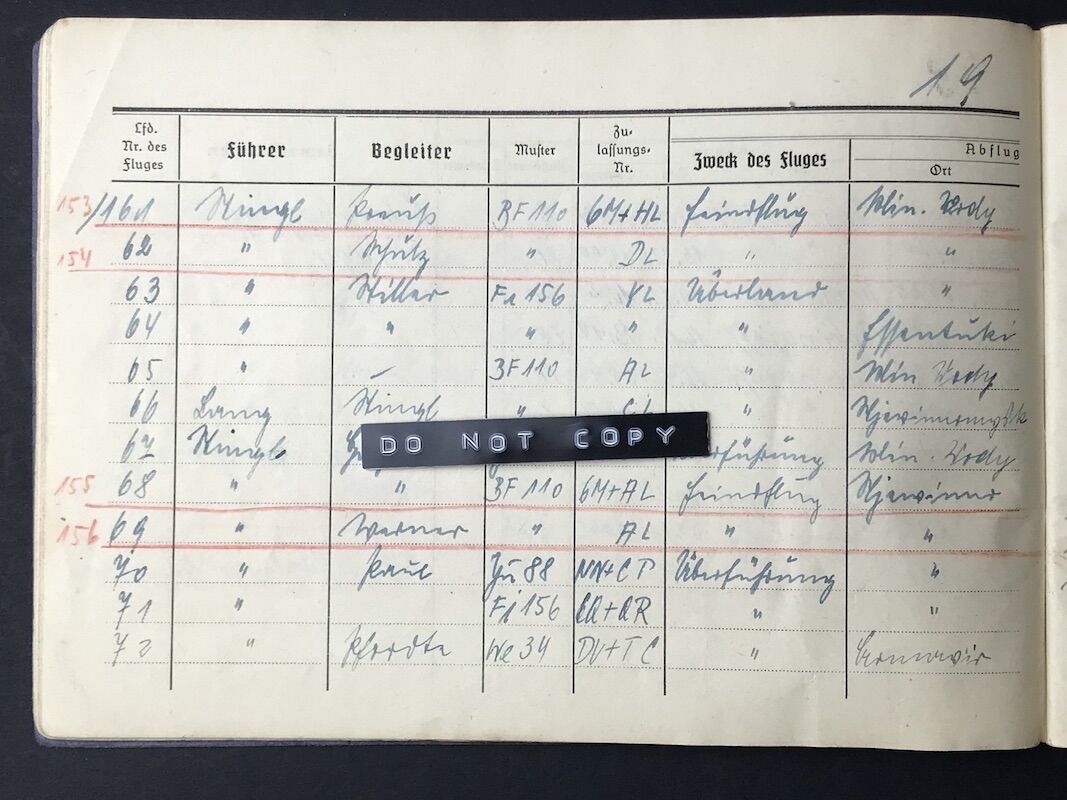 19
Lfd. Nr. des Fluges Führer Begleiter Muster Zu- lassungs- Nr. Zweck des Fluges Abflug Ort
153 /161 Stingl Preuß BF 110 6M+HL Feindflug Min. Wody
154 62 " Schulz " DL " "
63 " Stiller Fi 156 KL Überland "
64 " " " " " Essentuki
65 " – BF 110 AL " Min Wody
66 Lang Stingl " CL "
67 Stingl Überführung Min. Wody
DO NOT COPY
155 68 " " BF 110 6M+AL Feindflug
156 69 " Werner " AL " "
70 " Paul Ju 88 NN+CP Überführung "
71 " Fi 156 " "
72 " We 34 DV+TC " Armavir